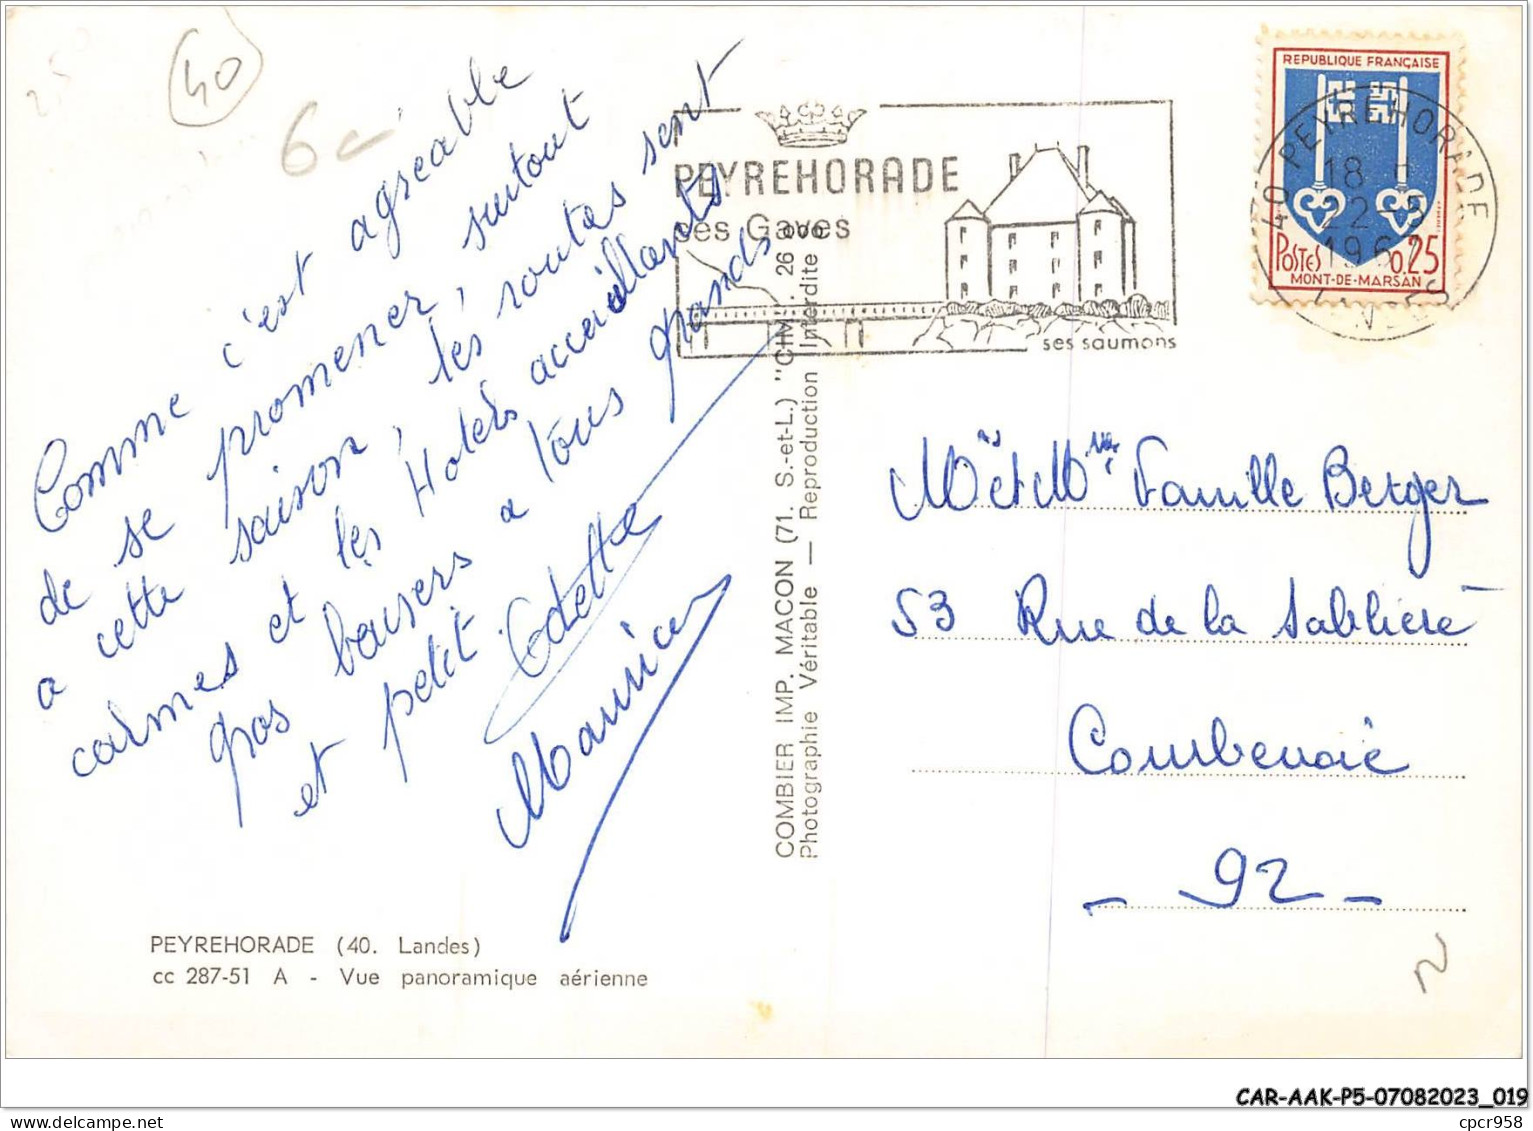 40
6
Comme c'est agréable
de se promener, surtout
a cette saison, les routes sont
calmes et les Hotels accueillants
gros baisers a tous grands
et petit. Odette
Maurice
PEYREHORADE (40. Landes)
cc 287-51 A - Vue panoramique aérienne
COMBIER IMP. MACON (71. S.-et-L.) "CIM"
Photographie Véritable — Reproduction Interdite
PEYREHORADE
ses Gaves
ses saumons
REPUBLIQUE FRANÇAISE
POSTES 0,25
MONT-DE-MARSAN
40 PEYREHORADE
18
22-5
196
LANDES
Mr et Mme Famille Berger
53 Rue de la Sablière
Courbevoie
- 92 -
CAR-AAK-P5-07082023_019
cpcr958